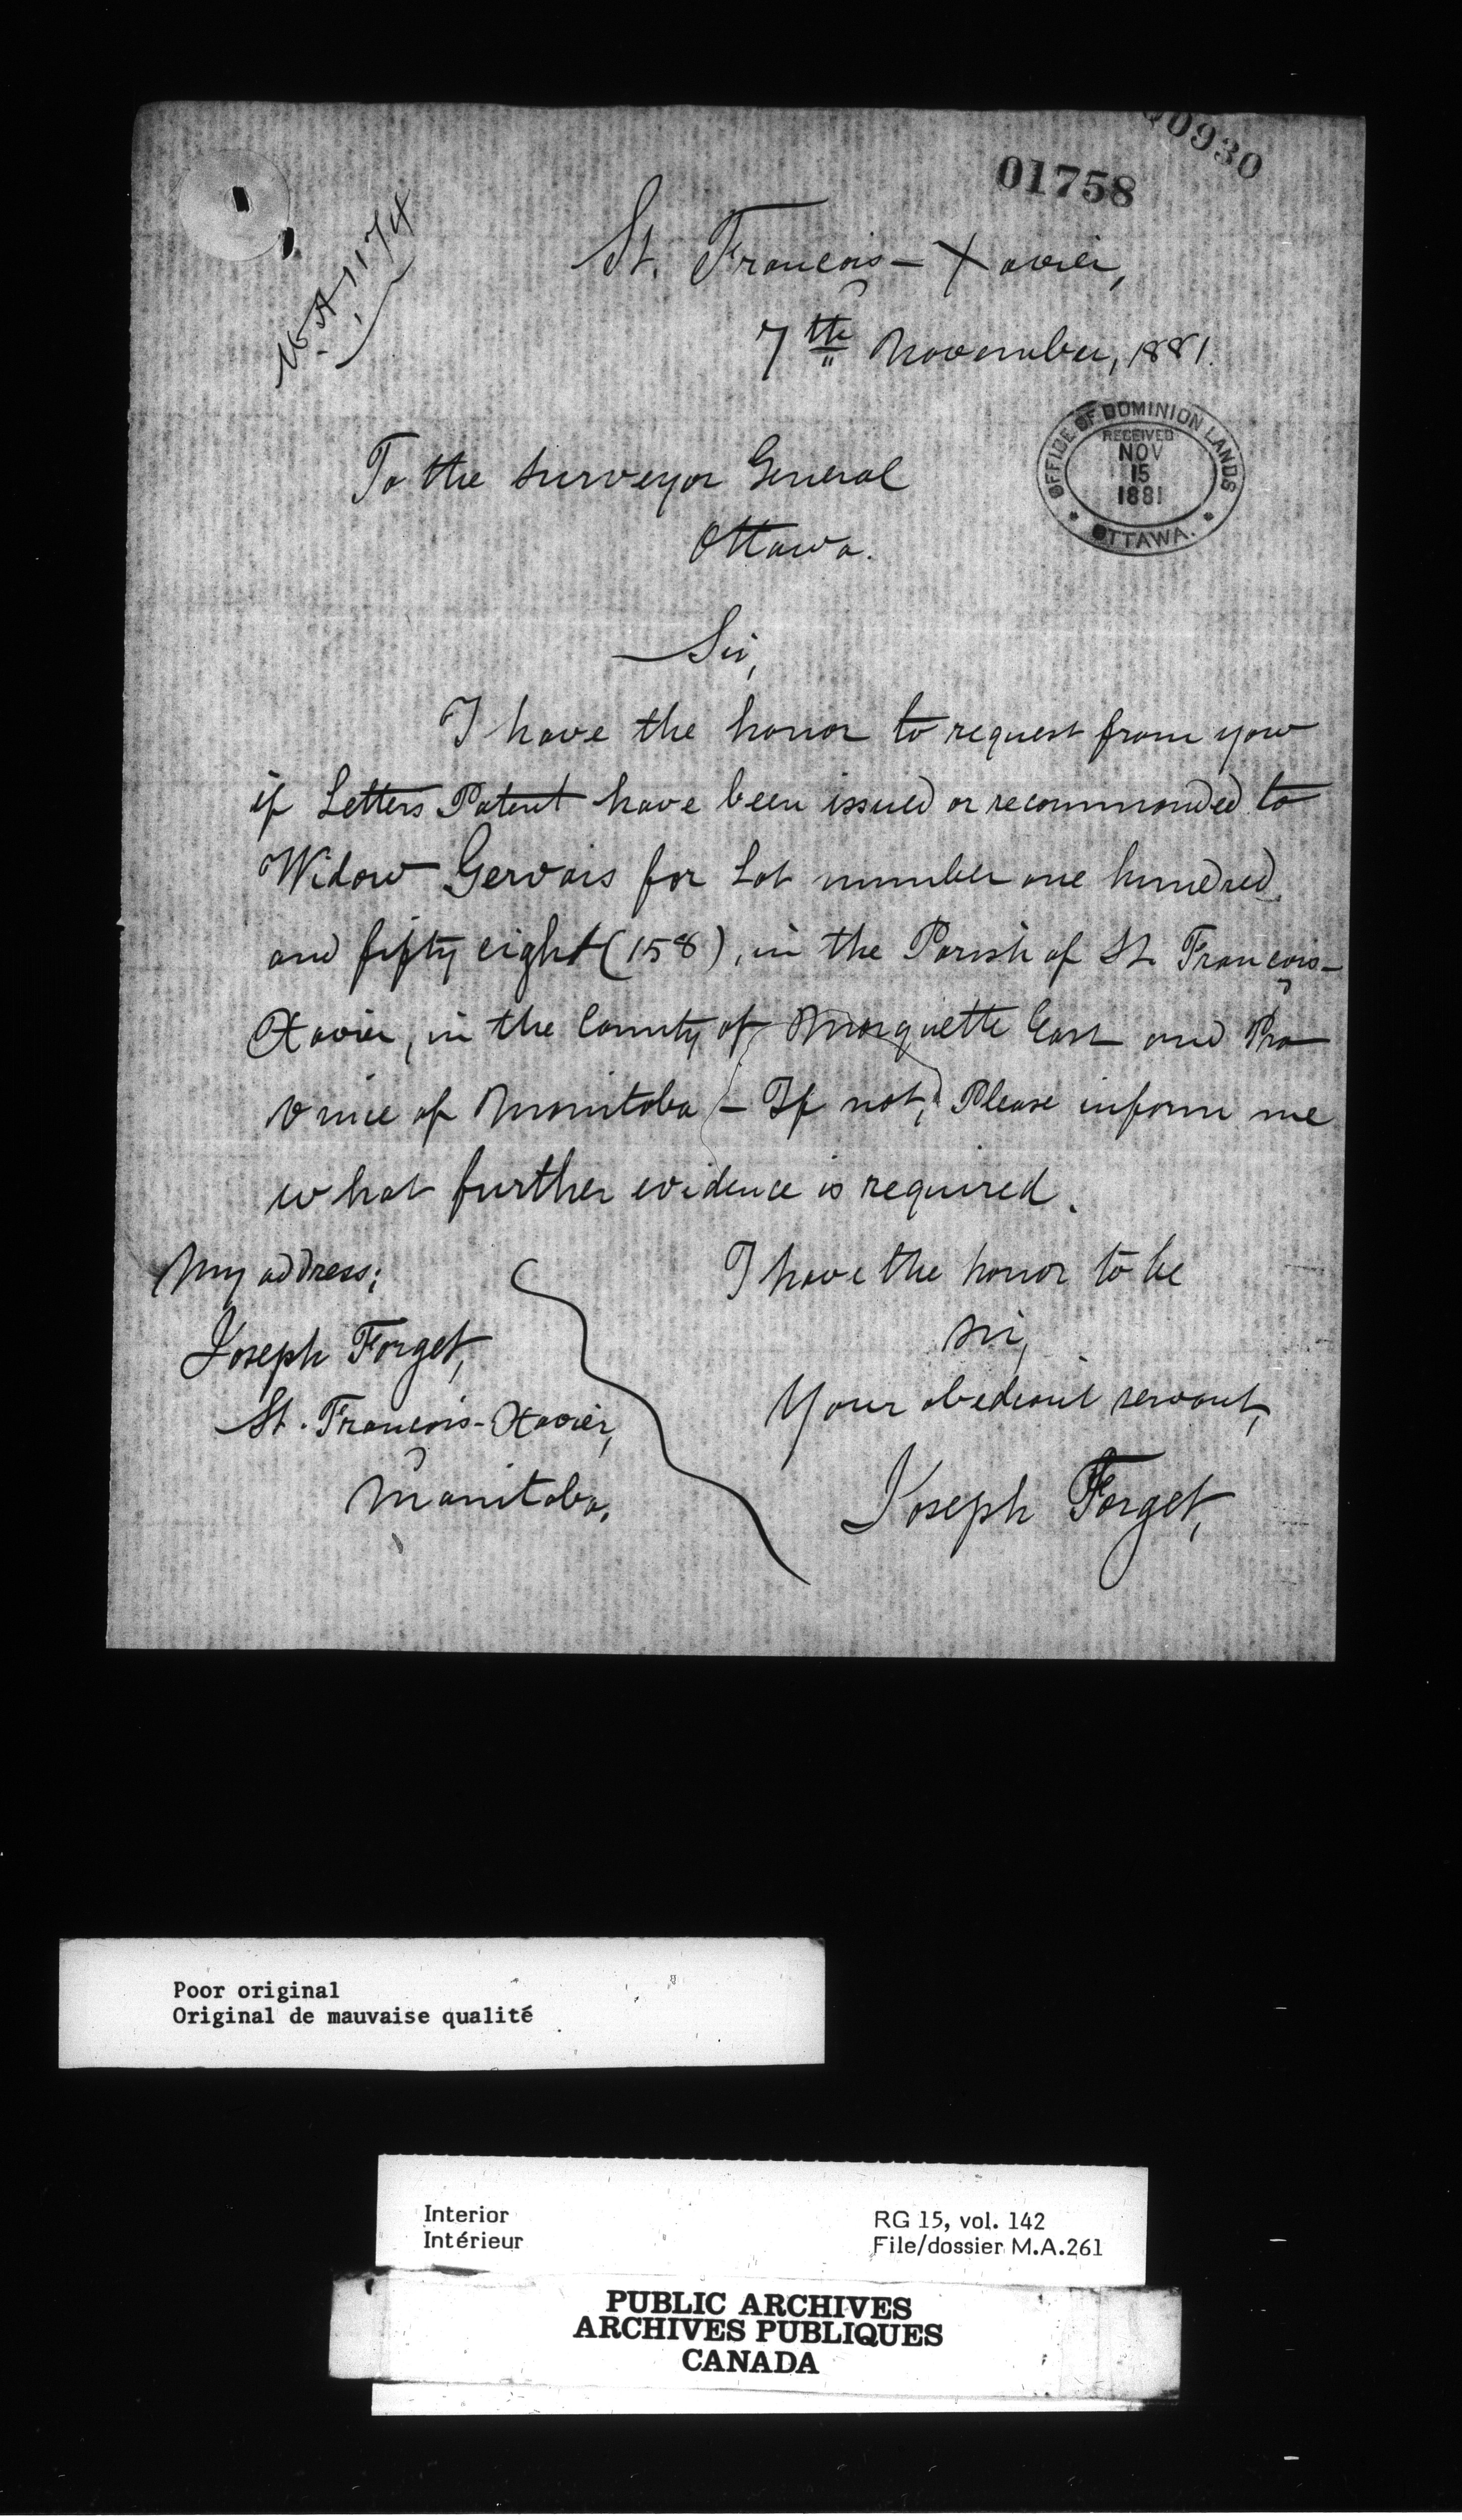 01758
St. François-Xavier,
7th November, 1881.
To the Surveyor General
Ottawa.
OFFICE OF DOMINION LANDS
RECEIVED
NOV
15
1881
OTTAWA.
Sir,
I have the honor to request from you
if Letters Patent have been issued or recommended to
Widow Gervais for Lot number one hundred
and fifty eight (158), in the Parish of St. François-
Xavier, in the County of Marquette East and Pro
vince of Manitoba - If not, Please inform me
what further evidence is required.
My address:
Joseph Forget,
St. François-Xavier,
Manitoba.
I have the honor to be
Sir,
Your obedient servant,
Joseph Forget,
Poor original
Original de mauvaise qualité
Interior
Intérieur
RG 15, vol. 142
File/dossier M.A.261
PUBLIC ARCHIVES
ARCHIVES PUBLIQUES
CANADA